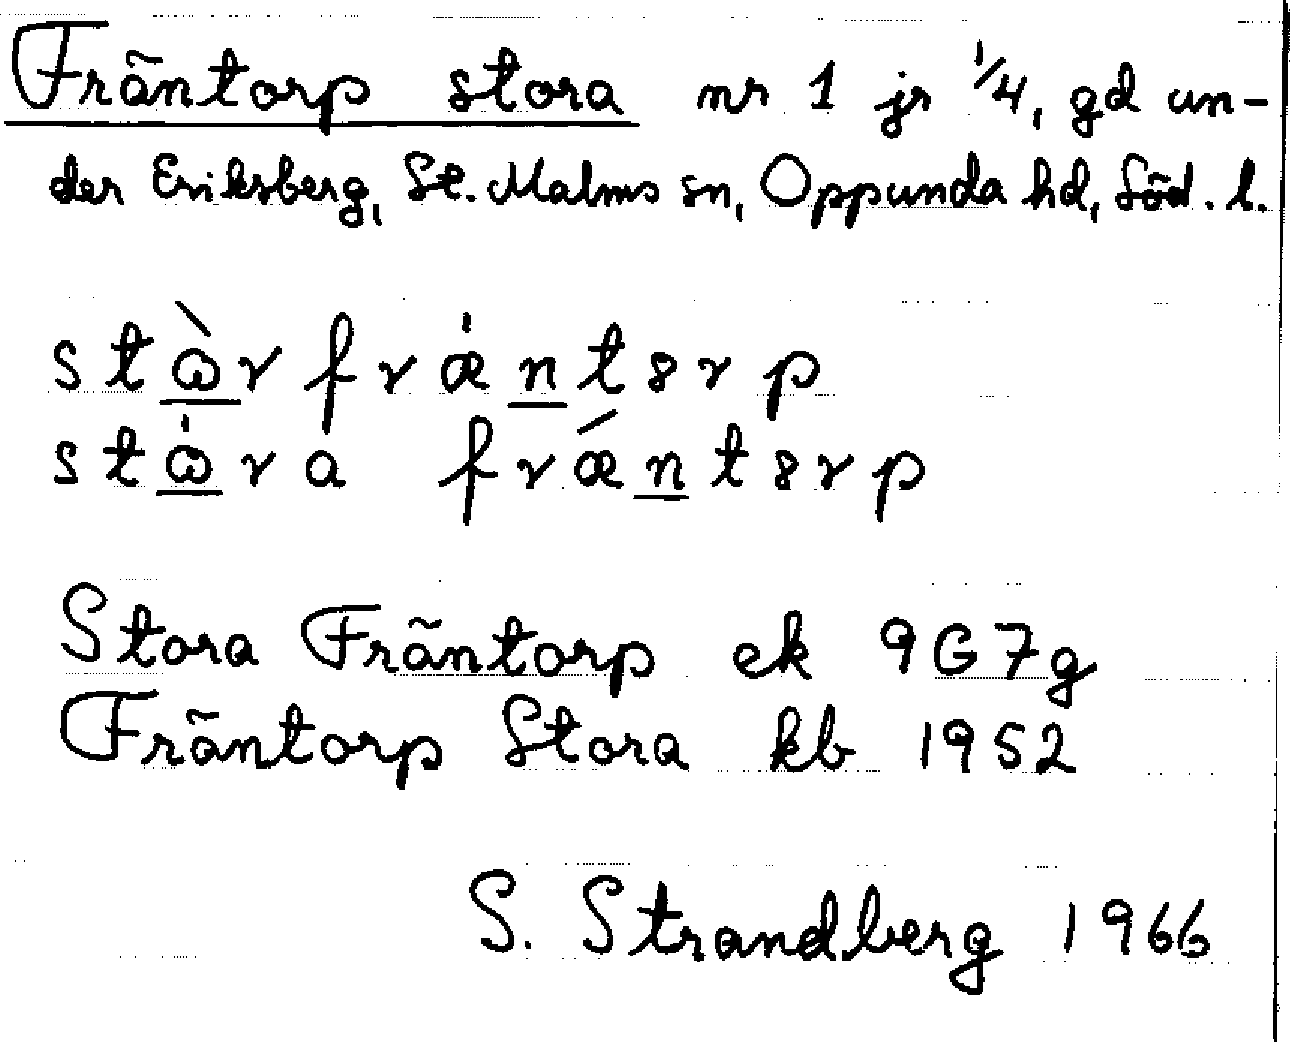 Fräntorp stora nr 1 jr 1/4, gd un-
der Eriksberg, St. Malms sn, Oppunda hd, Söd. l.
stὼr frǽntȣrp
stω̇ra frǽntȣrp
Stora Fräntorp ek 9G7g
Fräntorp Stora kb 1952
S. Strandberg 1966